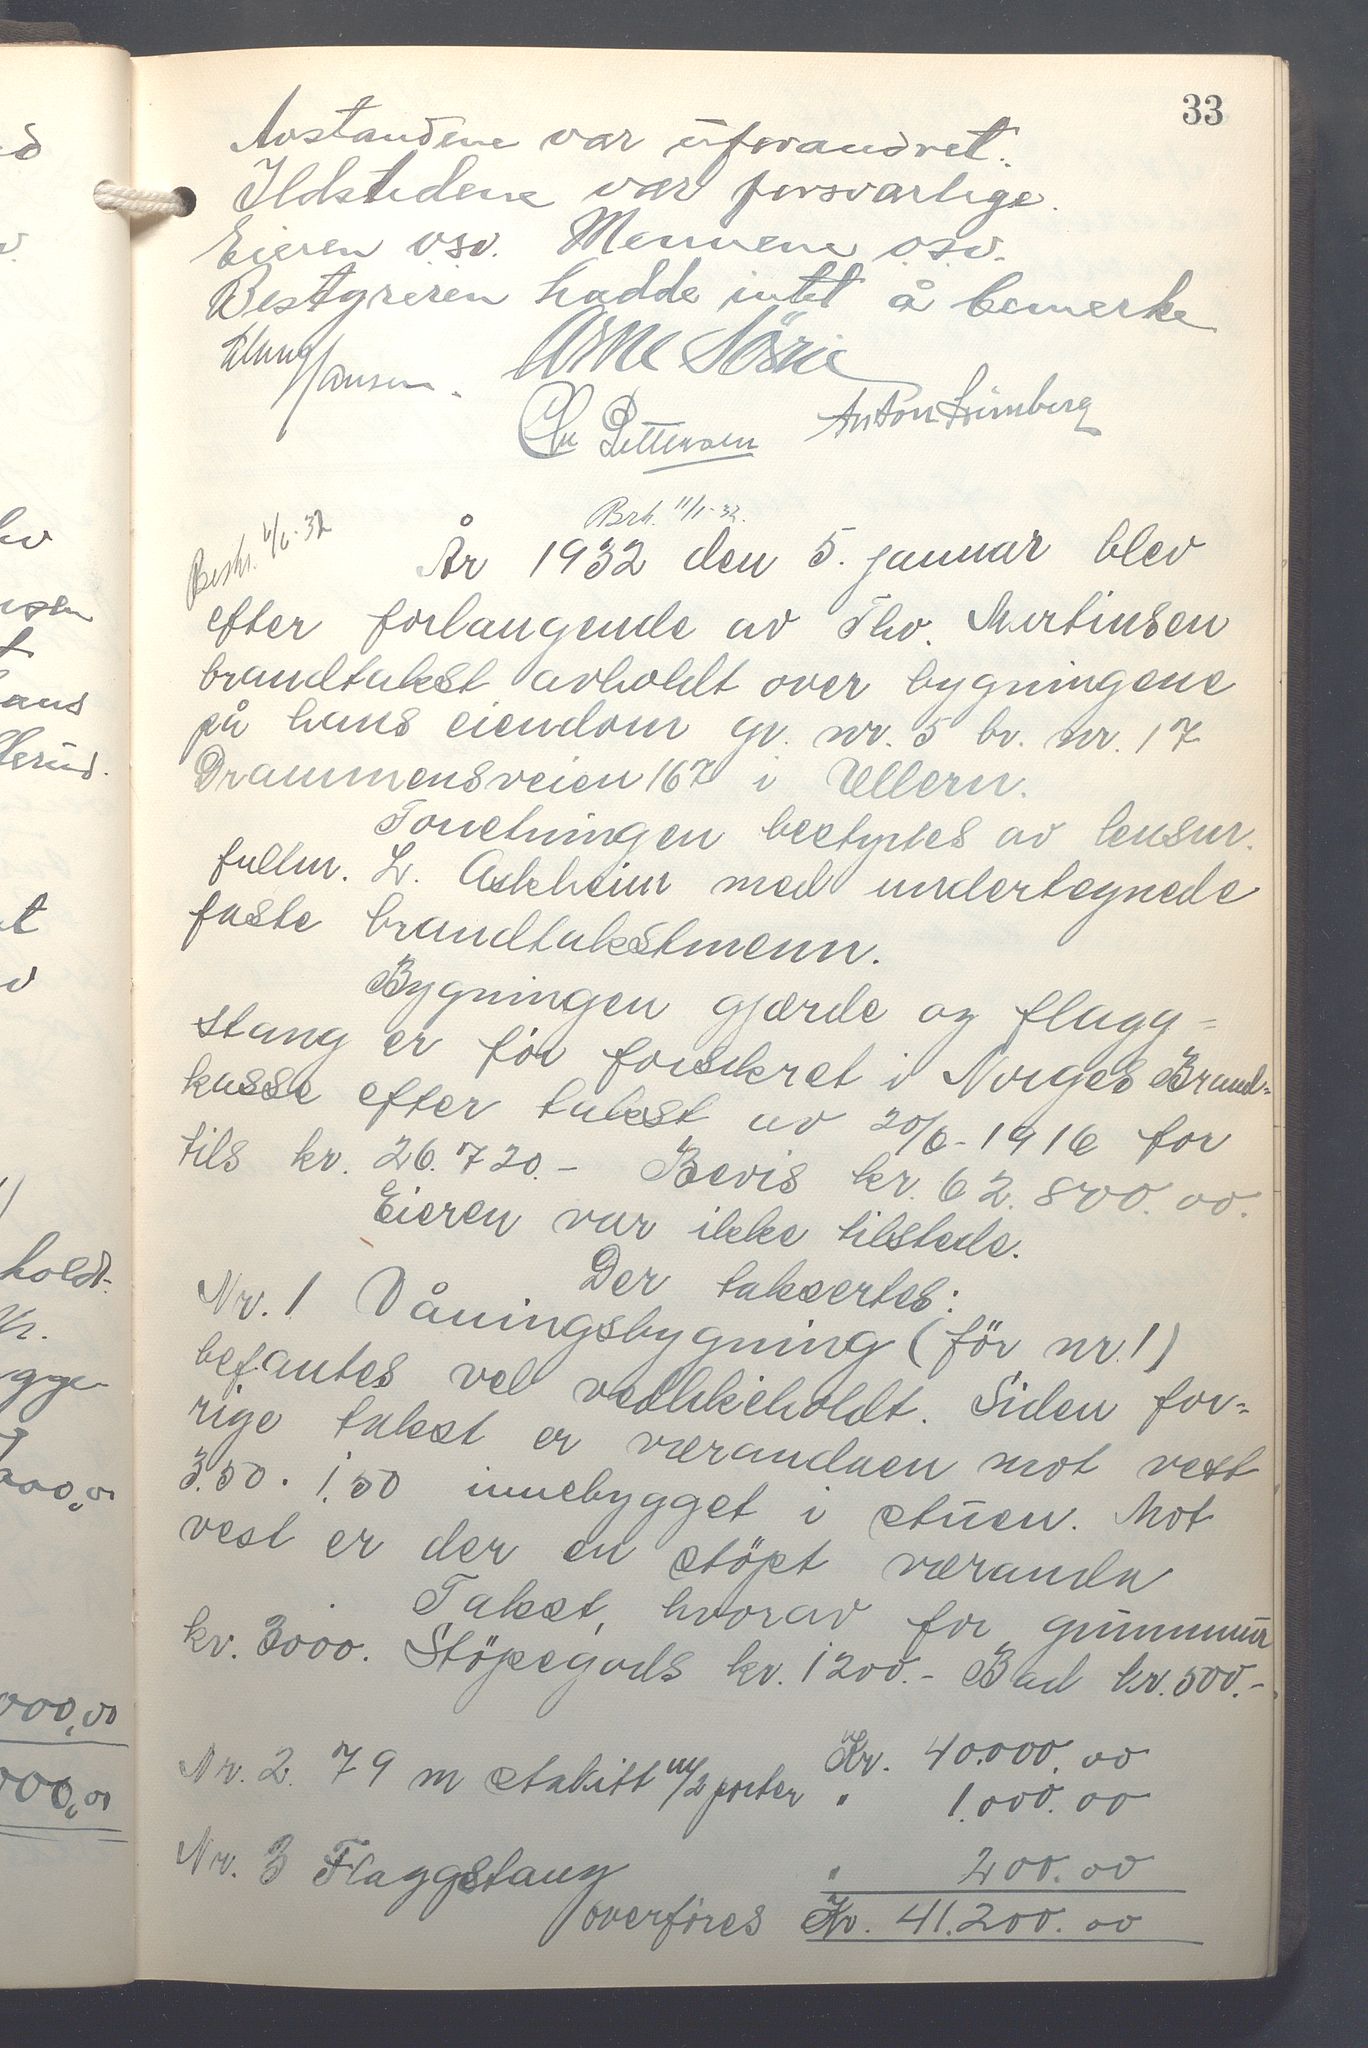 33
Avstandene var uforandret.
Ildstedene var forsvarlige.
Eieren osv. Mennene osv.
Bestyreren hadde intet å bemerke
Hansen. Arne Sörie
Chr Pettersen Anton
Brh. 11/1-32.
Beskr. 6/1-32
År 1932 den 5. januar blev
efter forlangende av Thv. Martinsen
brandtakst avholdt over bygningene
på hans eiendom gr. nr. 5 br. nr. 17
Drammensveien 167 i Ullern.
Forretningen bestyrtes av lensm.
fullm. L. Askheim med undertegnede
faste brandtakstmenn.
Bygningen gjærde og flagg=
stang er för forsikret i Norges Brand=
kasse efter takst av 20/6-1916 for
tils kr. 26.720.- Bevis kr. 62.800.00.
Eieren var ikke tilstede.
Der taksertes:
Nr. 1 Våningsbygning (för nr. 1)
befantes vel vedlikeholdt. Siden for=
rige takst er verandaen mot vest
3.50 . 1.50 innebygget i stuen. Mot
vest er der en stöpt veranda
Takst, hvorav for grunnmur
kr. 3000. Stöpegods kr. 1200.- Bad kr. 500.-
Kr. 40.000.00
Nr. 2. 79 m stakitt m/2 porter " 1.000.00
Nr. 3 Flaggstang " 200.00
overföres Kr. 41.200.00